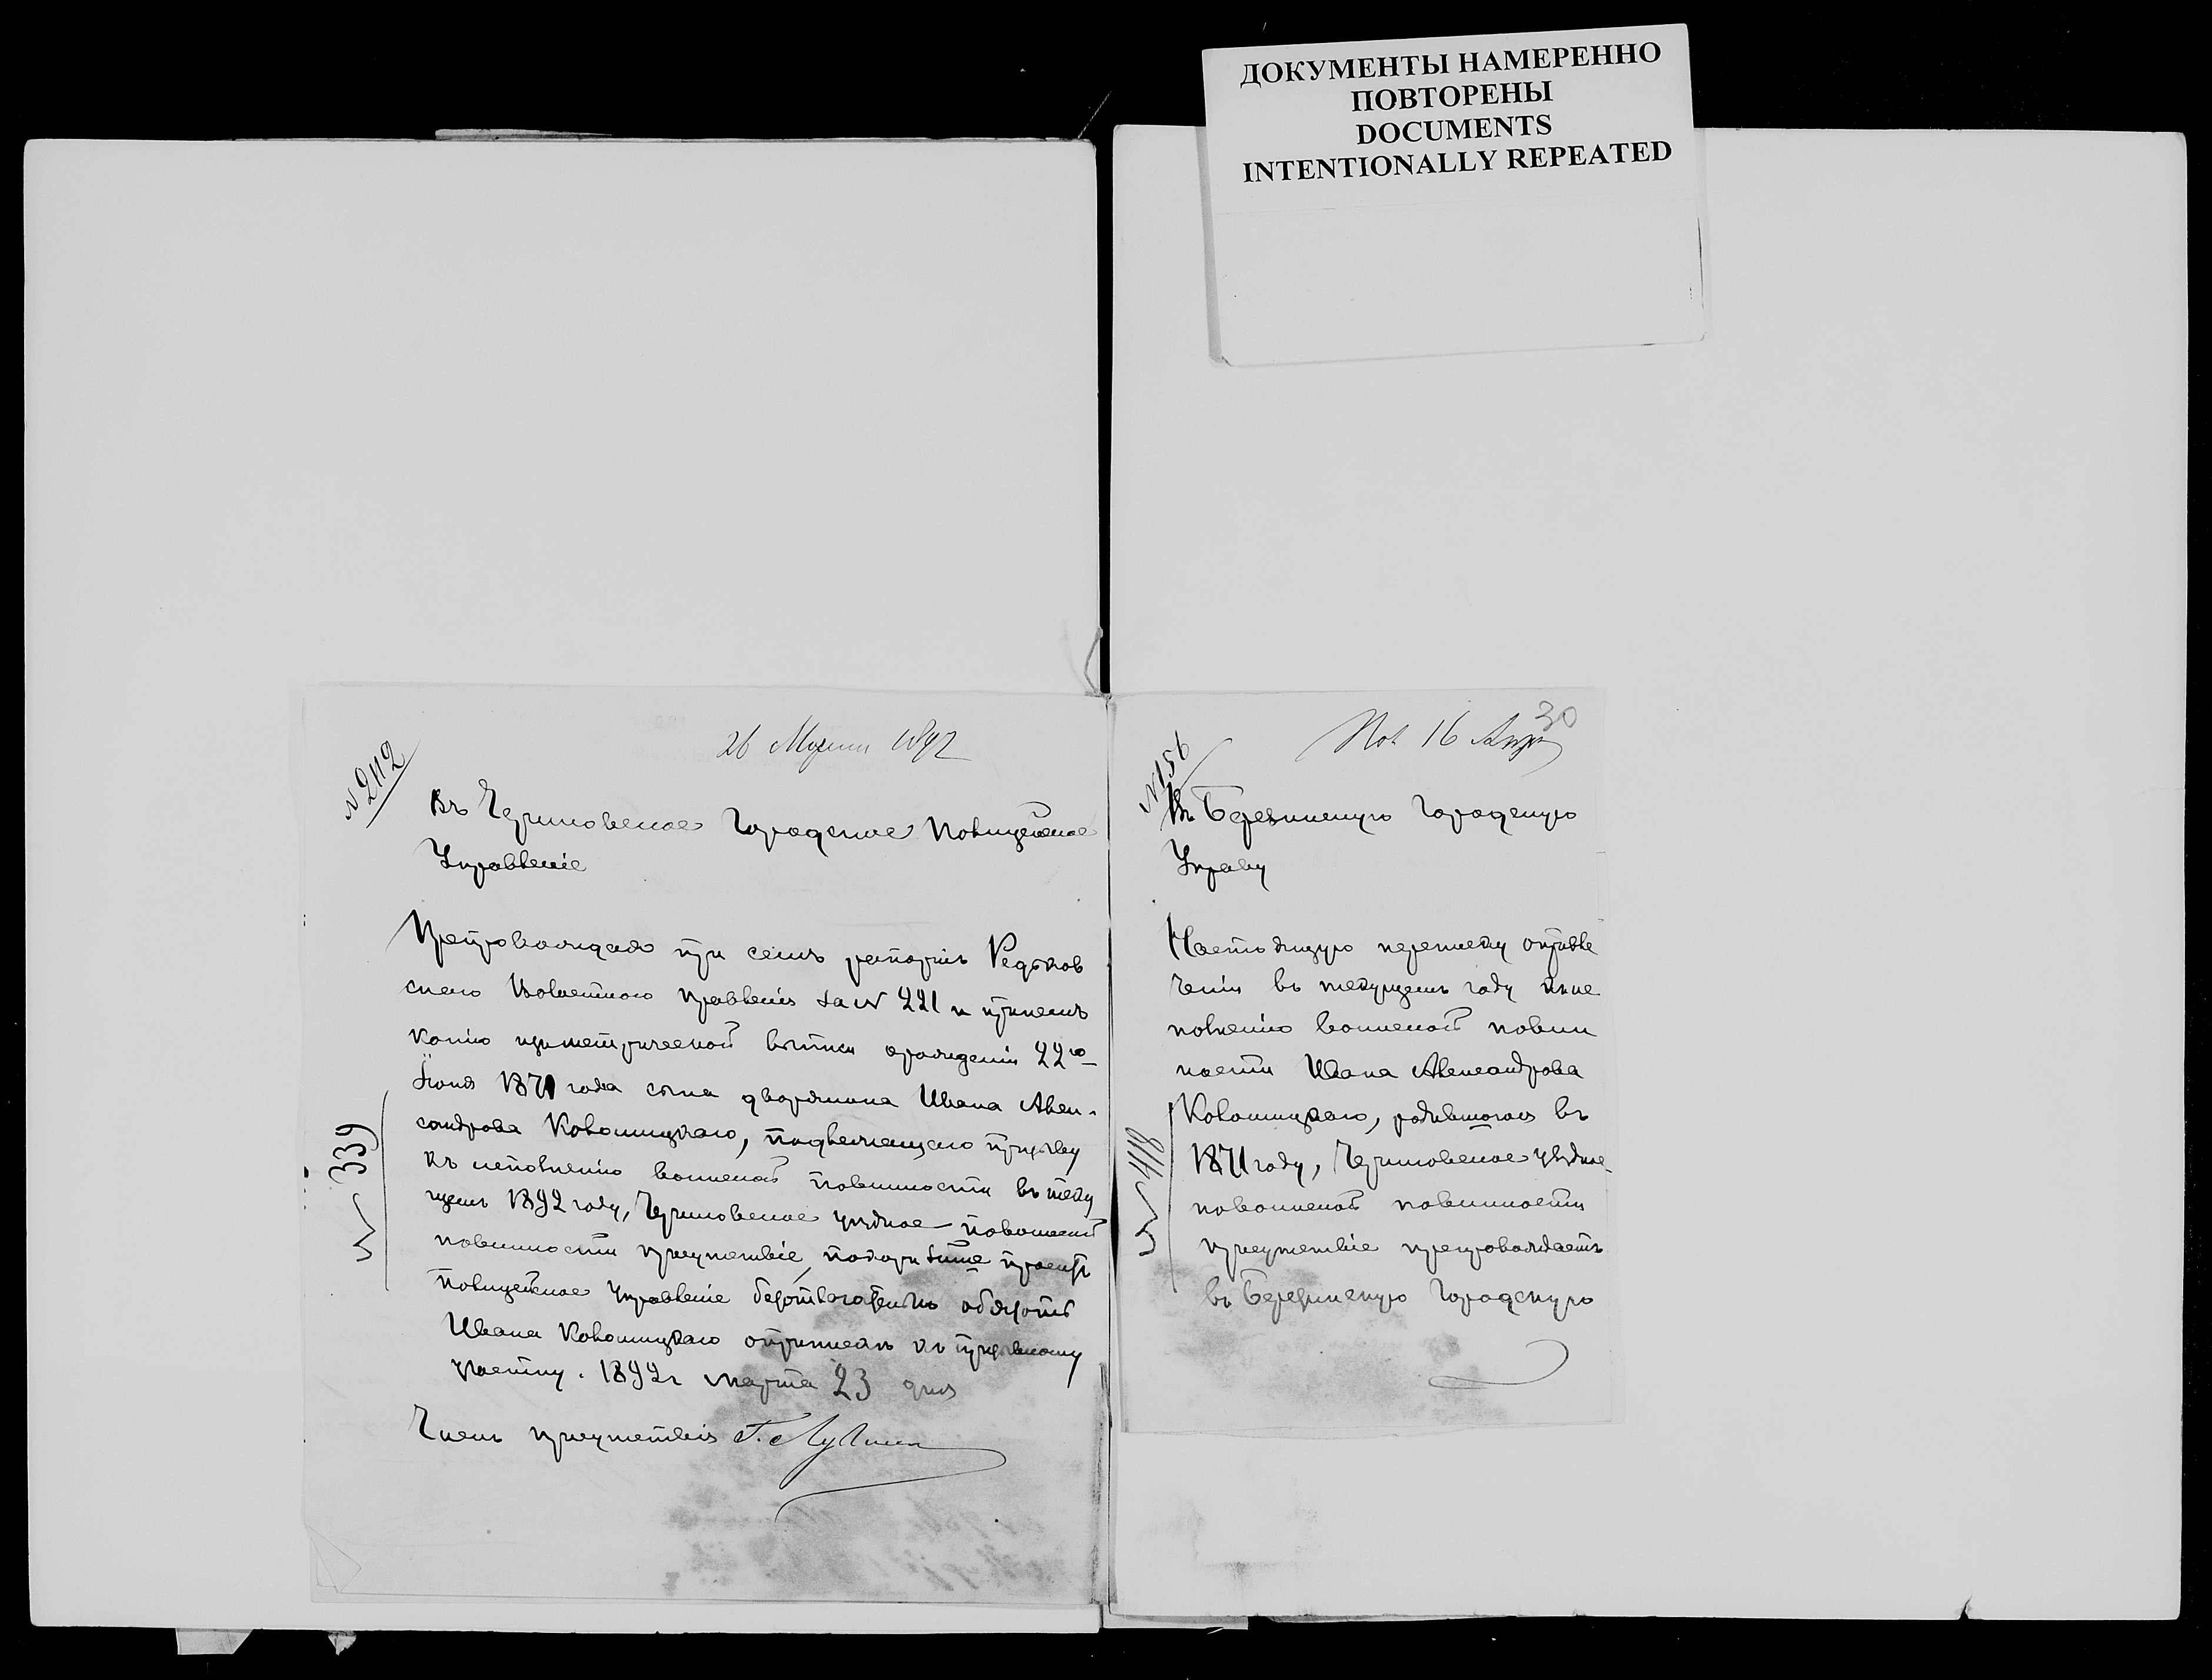 ДОКУМЕНТЫ НАМЕРЕННО
ПОВТОРЕНЫ
DOCUMENTS
INTENTIONALLY REPEATED
26 Марта 1892
№ 2112
Въ Черниговское Городское Полицейское
Управленіе
Препровождая при семъ рапортъ Редьков
скаго Волостного Правленія за № 221 и при немъ
копію изъ метрической выписи о рожденіи 22го
Іюня 1871 года сына дворянина Ивана Алек-
сандрова Коломицкаго, подлежащаго призыву
къ исполненію воинской повинности въ теку
щемъ 1892 году, Черниговское уѣздное по воинской
повинности присутствіе, покорнѣйше проситъ
Полицейское Управленіе безотлагательно обязать
Ивана Коломицкаго о припискѣ къ призывному
участку. 1892 г. марта 23 дня
Членъ присутствія
№ 339
30
Пол. 16 Апр
№ 156
Въ Березинскую Городскую
Управу
Настоящую переписку о привле
ченіи въ текущемъ году къ ис
полненію воинской повин
ности Ивана Александрова
Коломицкаго, родившагося въ
1871 году, Черниговское уѣздное
по воинской повинности
присутствіе препровождаетъ
въ Березинскую Городскую
№ 418